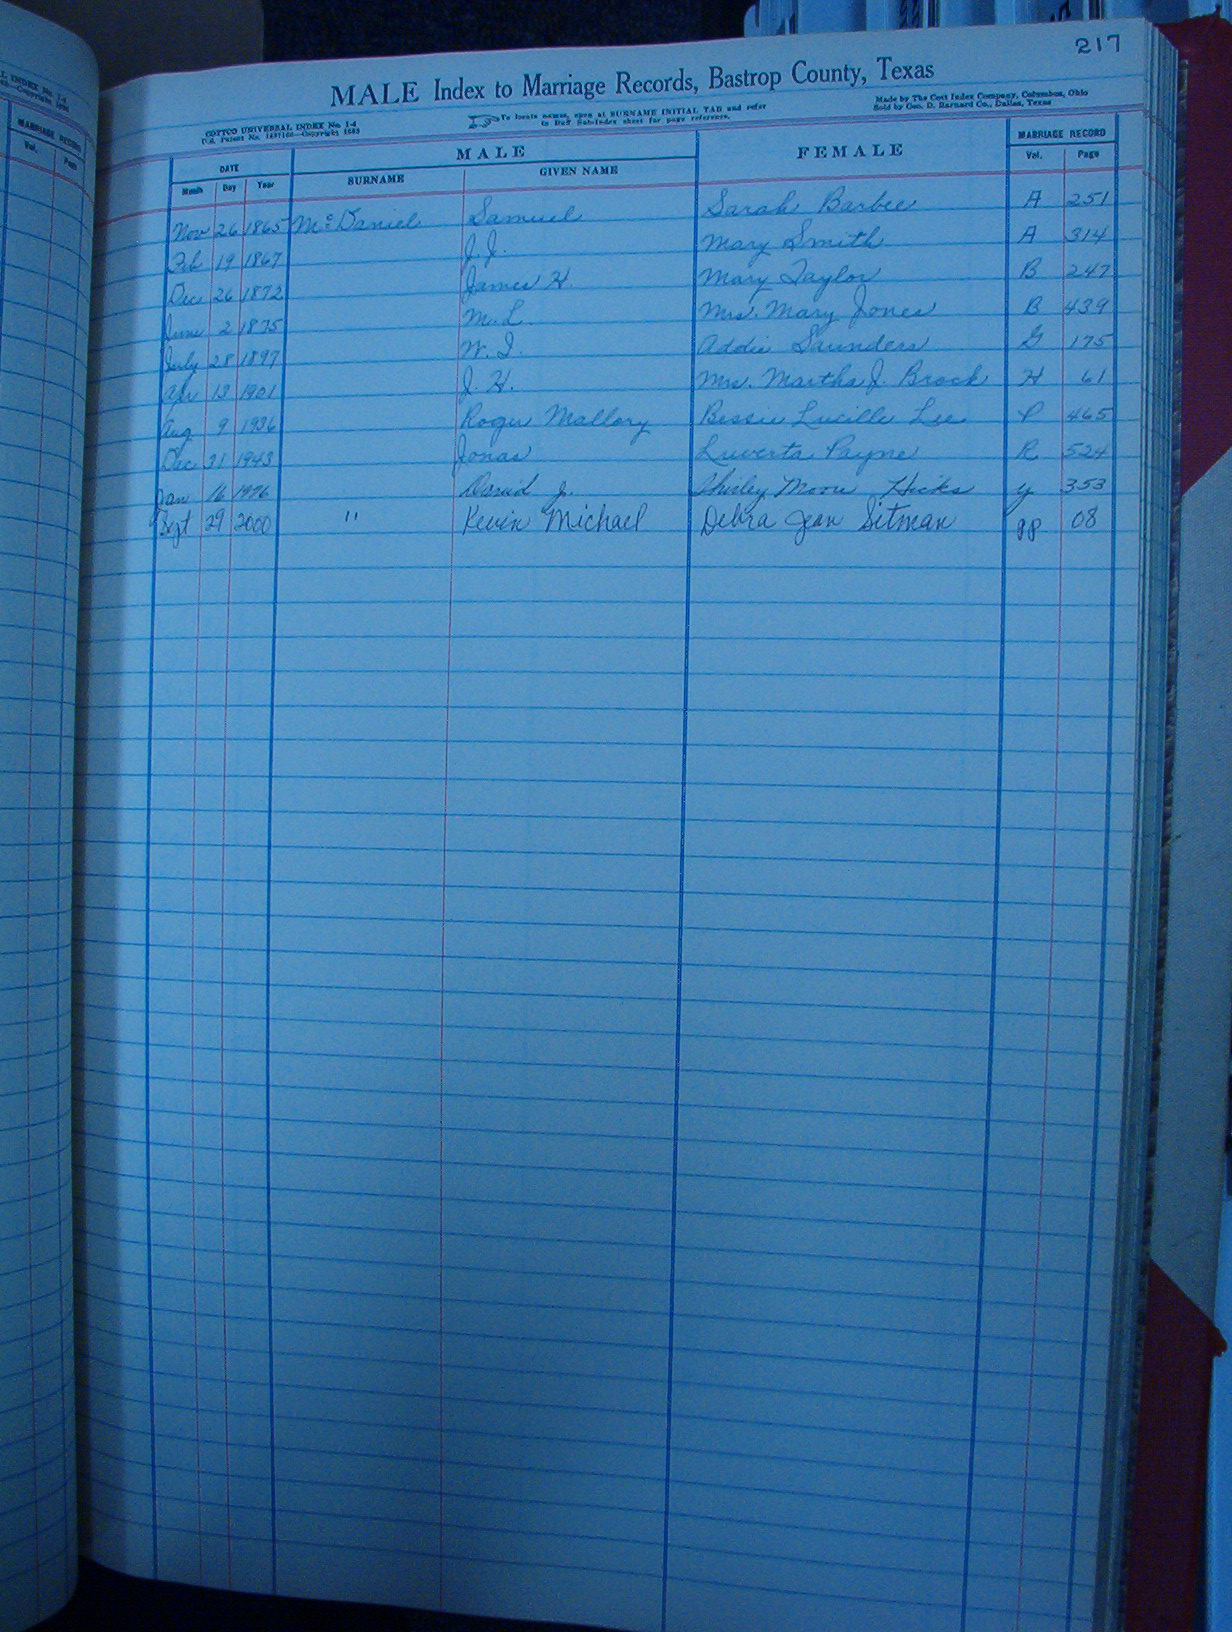 217
MALE Index to Marriage Records, Bastrop County, Texas
COTTCO UNIVERSAL INDEX No. 1-4
To locate names, open at SURNAME INITIAL TAB and refer
to Sub-Index sheet for page reference.
Made by The Cott Index Company, Columbus, Ohio
Sold by Geo. D. Barnard Co., Dallas, Texas
DATE MALE FEMALE MARRIAGE RECORD
Month Day Year SURNAME GIVEN NAME Vol. Page
Nov 26 1865 McDaniel Samuel Sarah Barbee A 251
Feb 19 1867 J.J. Mary Smith A 314
Dec 26 1872 James H. Mary Taylor B 247
June 2 1875 M.L. Mrs. Mary Jones B 439
July 28 1897 Addie Saunders G 175
Apr 13 1901 J.H. Mrs. Martha J. Brock H 61
Aug 9 1936 Roger Mallory Bessie Lucille Lee P 465
Dec 31 1943 Jonas Luverta Payne R 524
Jan 16 1976 David J. Shirley Moore Hicks Y 353
Sept 29 2000 " Kevin Michael Debra Jean Sitman 08
MARRIAGE RECORD
Vol. Page